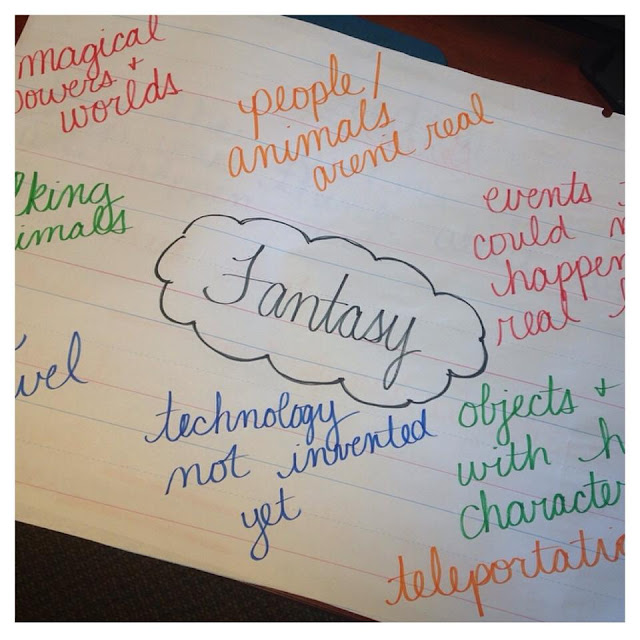 magical
powers +
worlds
people/
animals
arent real
lking
imals
events
could
happen
real
Fantasy
vel
technology
not invented
yet
objects +
with h
characte
teleportati